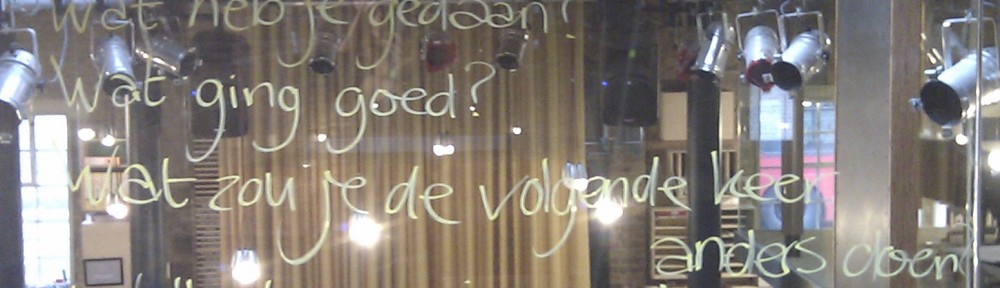 Wat heb je gedaan?
Wat ging goed?
Wat zou je de volgende keer
anders doen?